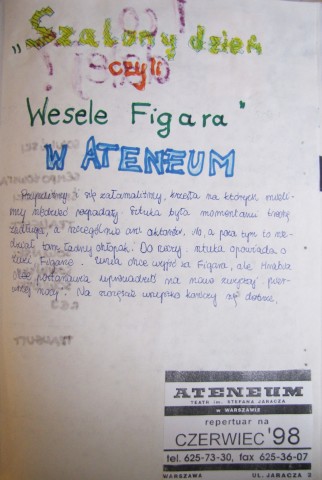 „Szalony dzień
czyli
Wesele Figara"
W ATENEUM
i się załamaliśmy, krzesła na których mieli-
śmy siedzieć rozpadały. Sztuka była momentami trochę
i szczególnie ani aktorów, No, a poza tym to nie-
tam żadny chłopak. Do rzeczy, sztuka opowiada o
Figaro. chce wyjść za Figara, ale Hrabia
wprowadzić na nowo zwyczaj pier-
wszej nocy. Na szczęście wszystko kończy się dobrze.
ATENEUM
TEATR im. STEFANA JARACZA
w WARSZAWIE
repertuar na
CZERWIEC '98
tel. 625-73-30, fax 625-36-07
WARSZAWA UL. JARACZA 2